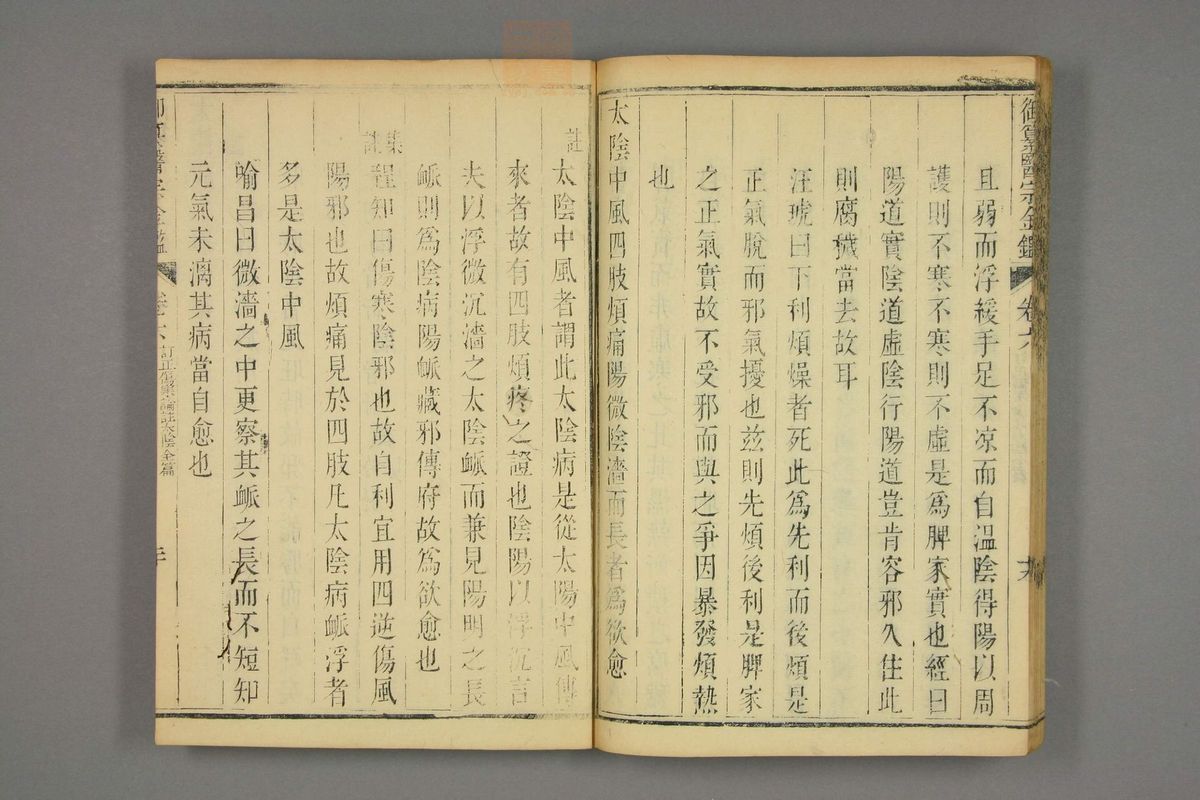 御纂醫宗金鑑 卷六
且弱而浮緩手足不凉而自溫陰得陽以周
護則不寒不寒則不虛是爲脾家實也經曰
陽道實陰道虛陰行陽道豈肯容邪久住此
則腐穢當去故耳
汪琥曰下利煩燥者死此爲先利而後煩是
正氣脫而邪氣擾也玆則先煩後利是脾家
之正氣實故不受邪而與之爭因暴發煩熱
也
太陰中風四肢煩痛陽微陰濇而長者爲欲愈
註
太陰中風者謂此太陰病是從太陽中風傳
來者故有四肢煩疼之證也陰陽以浮沉言
夫以浮微沉濇之太陰䘑而兼見陽明之長
䘑則爲陰病陽䘑藏邪傳府故爲欲愈也
集註
程知曰傷寒陰邪也故自利宜用四逆傷風
陽邪也故煩痛見於四肢凡太陰病䘑浮者
多是太陰中風
喻昌曰微濇之中更察其䘑之長而不短知
元氣未漓其病當自愈也
醫宗金鑑 卷六 訂正傷寒論註太陰全篇